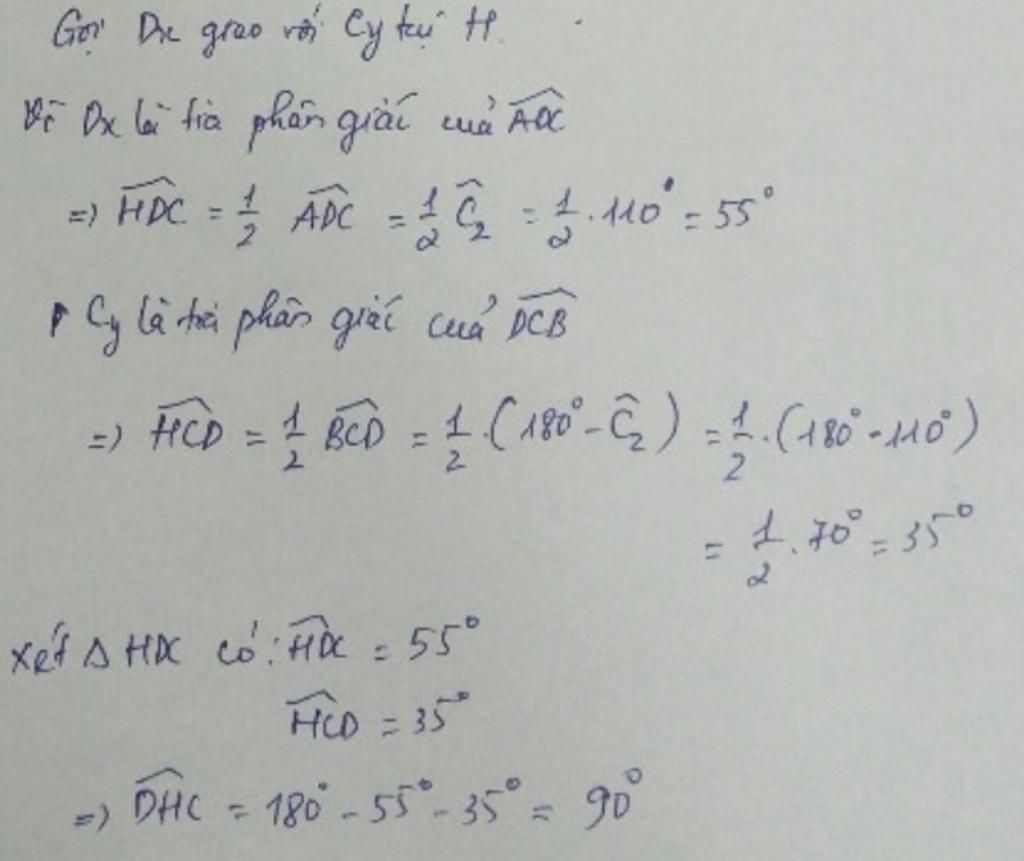 Gọi Dx giao với Cy tại H.
Vì Dx là tia phân giác của \widehat{ADC}
=) \widehat{HDC} = \frac{1}{2} \widehat{ADC} = \frac{1}{2} \widehat{C}_2 = \frac{1}{2} . 110° = 55°
Cy là tia phân giác của \widehat{DCB}
=) \widehat{HCD} = \frac{1}{2} \widehat{BCD} = \frac{1}{2} . (180° - \widehat{C}_2) = \frac{1}{2} . (180° - 110°)
= \frac{1}{2} . 70° = 35°
Xét Δ HDC có: \widehat{HDC} = 55°
\widehat{HCD} = 35°
=) \widehat{DHC} = 180° - 55° - 35° = 90°